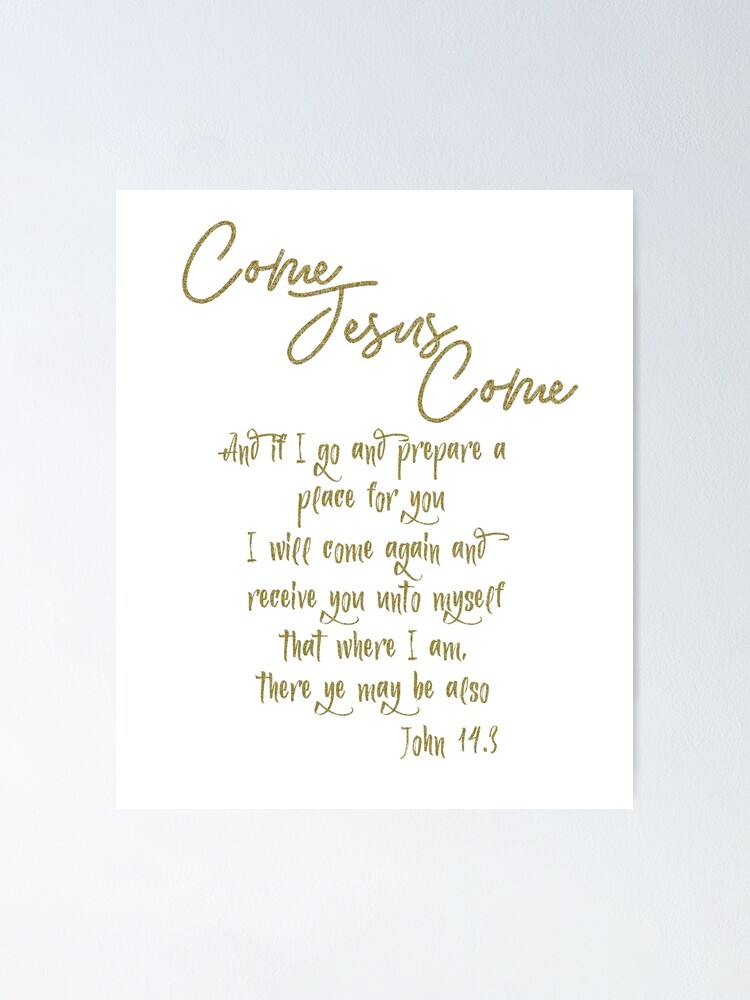 Come
Jesus
Come
And if I go and prepare a
place for you
I will come again and
receive you unto myself
that where I am,
there ye may be also
John 14.3